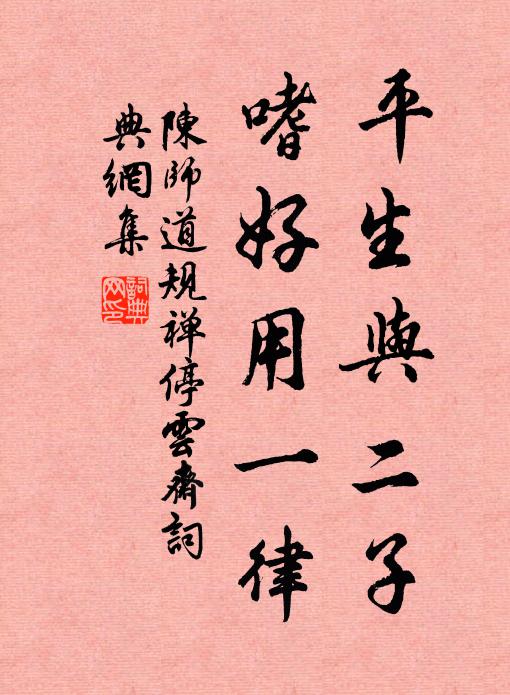 平生與二子
嗜好用一律
陳師道規禅停雲齋詞
典網集
詞典網印